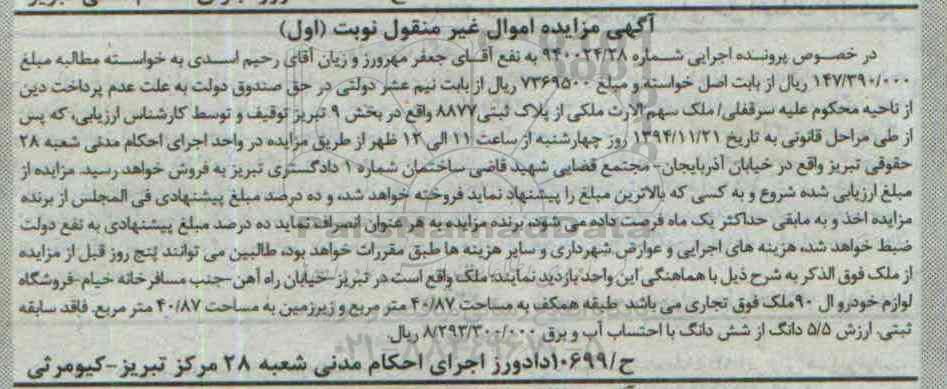 آگهی مزایده اموال غیر منقول نوبت (اول)
در خصوص پرونده اجرایی شماره ۹۴۰۰۲۴/۲۸ به نفع آقای جعفر مهرورز و زیان آقای رحیم اسدی به خواسته مطالبه مبلغ
۱۴۷/۳۹۰/۰۰۰ ریال از بابت اصل خواسته و مبلغ ۷۳۶۹۵۰۰ ریال از بابت نیم عشر دولتی در حق صندوق دولت به علت عدم پرداخت دین
از ناحیه محکوم علیه سرقفلی/ ملک سهم الارث ملکی از پلاک ثبتی ۸۸۷۷ واقع در بخش ۹ تبریز توقیف و توسط کارشناس ارزیابی، که پس
از طی مراحل قانونی به تاریخ ۱۳۹۴/۱۱/۲۱ روز چهارشنبه از ساعت ۱۱ الی ۱۲ ظهر از طریق مزایده در واحد اجرای احکام مدنی شعبه ۲۸
حقوقی تبریز واقع در خیابان آذربایجان- مجتمع قضایی شهید قاضی ساختمان شماره ۱ دادگستری تبریز به فروش خواهد رسید. مزایده از
مبلغ ارزیابی شده شروع و به کسی که بالاترین مبلغ را پیشنهاد نماید فروخته خواهد شد، و ده درصد مبلغ پیشنهادی فی المجلس از برنده
مزایده اخذ و به مابقی حداکثر یک ماه فرصت داده می شود، برنده مزایده به هر عنوان انصراف نماید ده درصد مبلغ پیشنهادی به نفع دولت
ضبط خواهد شد، هزینه های اجرایی و عوارض شهرداری و سایر هزینه ها طبق مقررات خواهد بود، طالبین می توانند پنج روز قبل از مزایده
از ملک فوق الذکر به شرح ذیل با هماهنگی این واحد بازدید نمایند: ملک واقع است در تبریز-خیابان راه آهن-جنب مسافرخانه خیام-فروشگاه
لوازم خودرو ال ۹۰ ملک فوق تجاری می باشد. طبقه همکف به مساحت ۴۰/۸۷ متر مربع و زیرزمین به مساحت ۴۰/۸۷ متر مربع. فاقد سابقه
ثبتی. ارزش ۵/۵ دانگ از شش دانگ با احتساب آب و برق ۸/۲۹۳/۳۰۰/۰۰۰ ریال.
ح/۱۰۶۹۹ دادورز اجرای احکام مدنی شعبه ۲۸ مرکز تبریز-کیومرثی